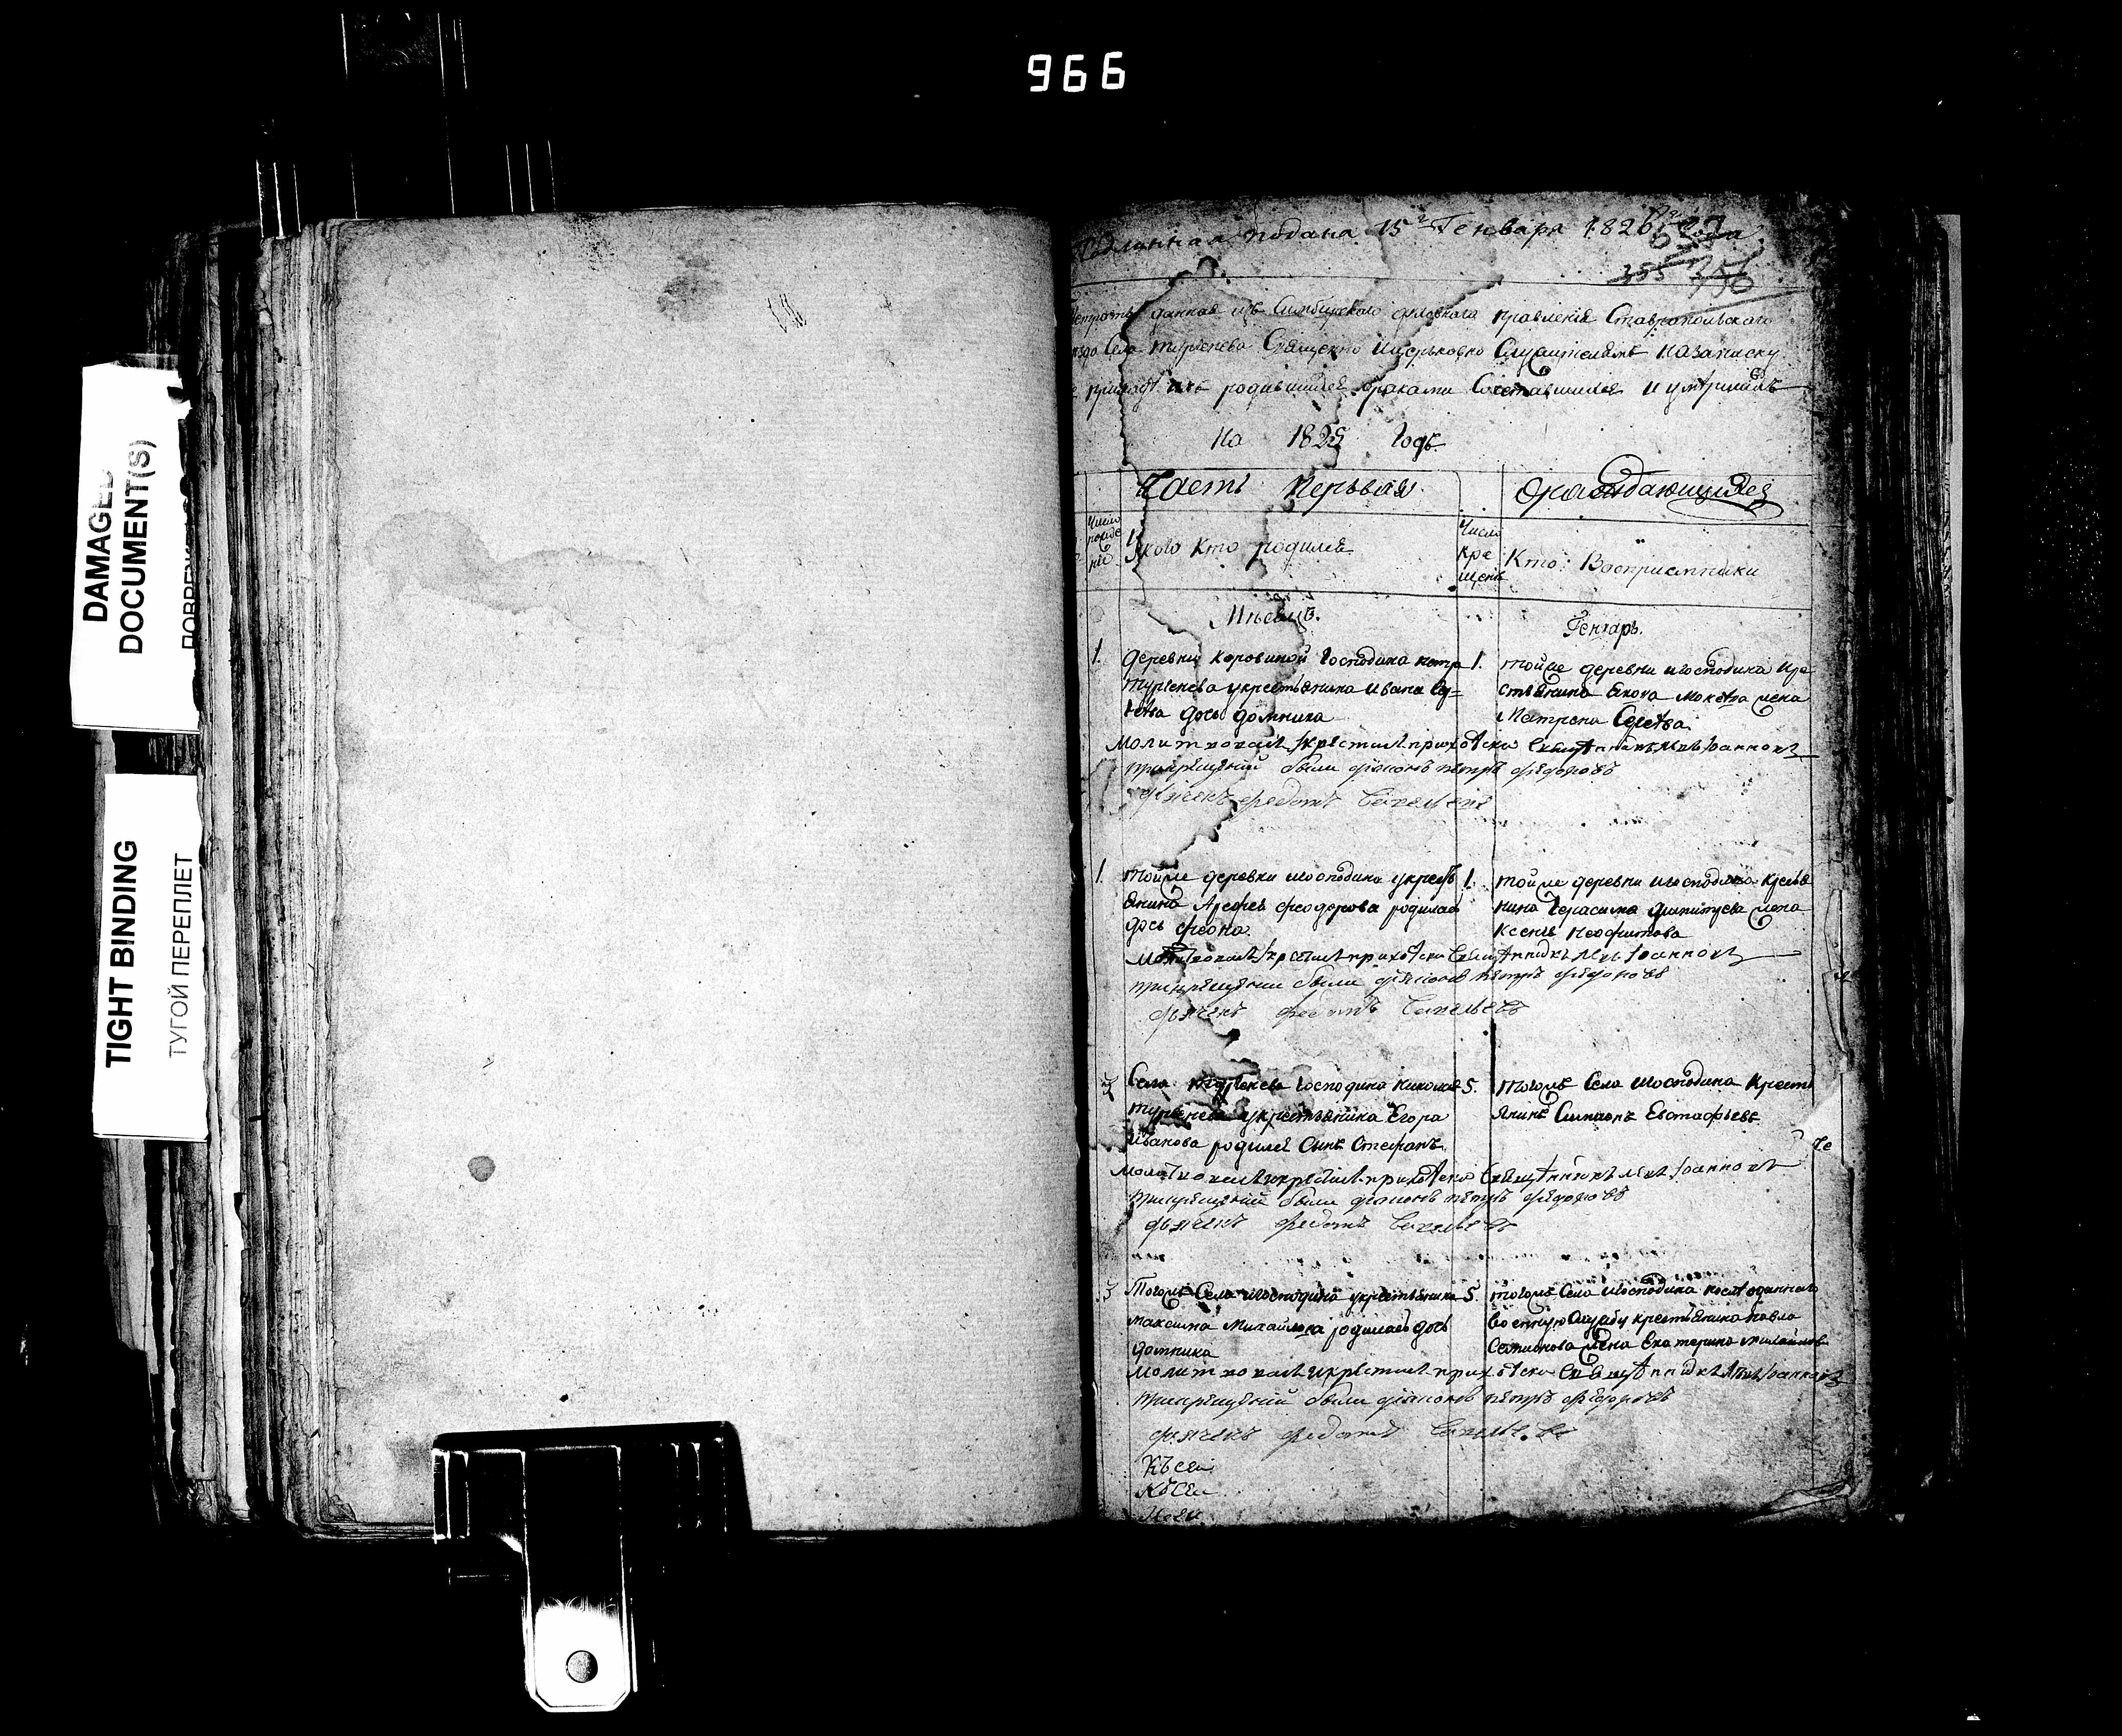 966
DAMAGED
DOCUMENT(S)
TIGHT BINDING
ТУГОЙ ПЕРЕПЛЕТ
подана 15 Генваря 1826 года
355 356
данная изъ Симбирского духовнаго правления Ставропольского
Села тургенева Священно ицерковно Служителямъ Назаписку
родившихся браками Сочетавшихся и умершихъ
На 1825 Годъ
Часть Первая
Число рожде нiя
Укого Кто родился
Число Кре щенiя
Кто Восприемники
Мѣсяцъ.
Генварь.
1. Деревни коровиной Господина петра
тургенева укрестьянина Ивана
дочь домника
1. тойже деревни игосподина кре
стьянина Якова жена
Матрена Сергѣва
Молитвовалъ Iкрестилъ приходской Священникъ Iоанновъ
прикрещенiй были дiяконъ петръ федоровъ
дьячекъ федотъ Савельевъ
1. тойже деревни игосподина укресть
янина Арефея феодорова родилась
дочь феона.
1. тойже деревни игосподина крестья
нина Герасима жена
ксения Неофитова
Молитвовалъ Iкрестилъ приходской Священникъ Iоанновъ
прикрещенiи были дiяконъ петръ федоровъ
дьячекъ федотъ Савельевъ
3 Села тургенева господина николая
тургенева укрестьянина Егора
Иванова родился Сынъ Стефанъ
5. тогожъ Села игосподина Кресть
янинъ Симионъ Евстафьевъ
Молитвовалъ икрестилъ приходской Священникъ Iоанновъ
прикрещенiй были дiяконъ петръ федоровъ
дьячекъ федотъ Савельевъ
3 Тогожъ Села игосподина укрестьянина
Максима Михайлова родилась дочь
домника
5. тогожъ Села игосподина
военную Службу крестьянина павла
Семионова жена Екатерина
Молитвовалъ икрестилъ приходской Священникъ Iоанновъ
прикрещенiй были дiяконъ петръ федоровъ
дьячекъ федотъ
Къ сей
Къ сей